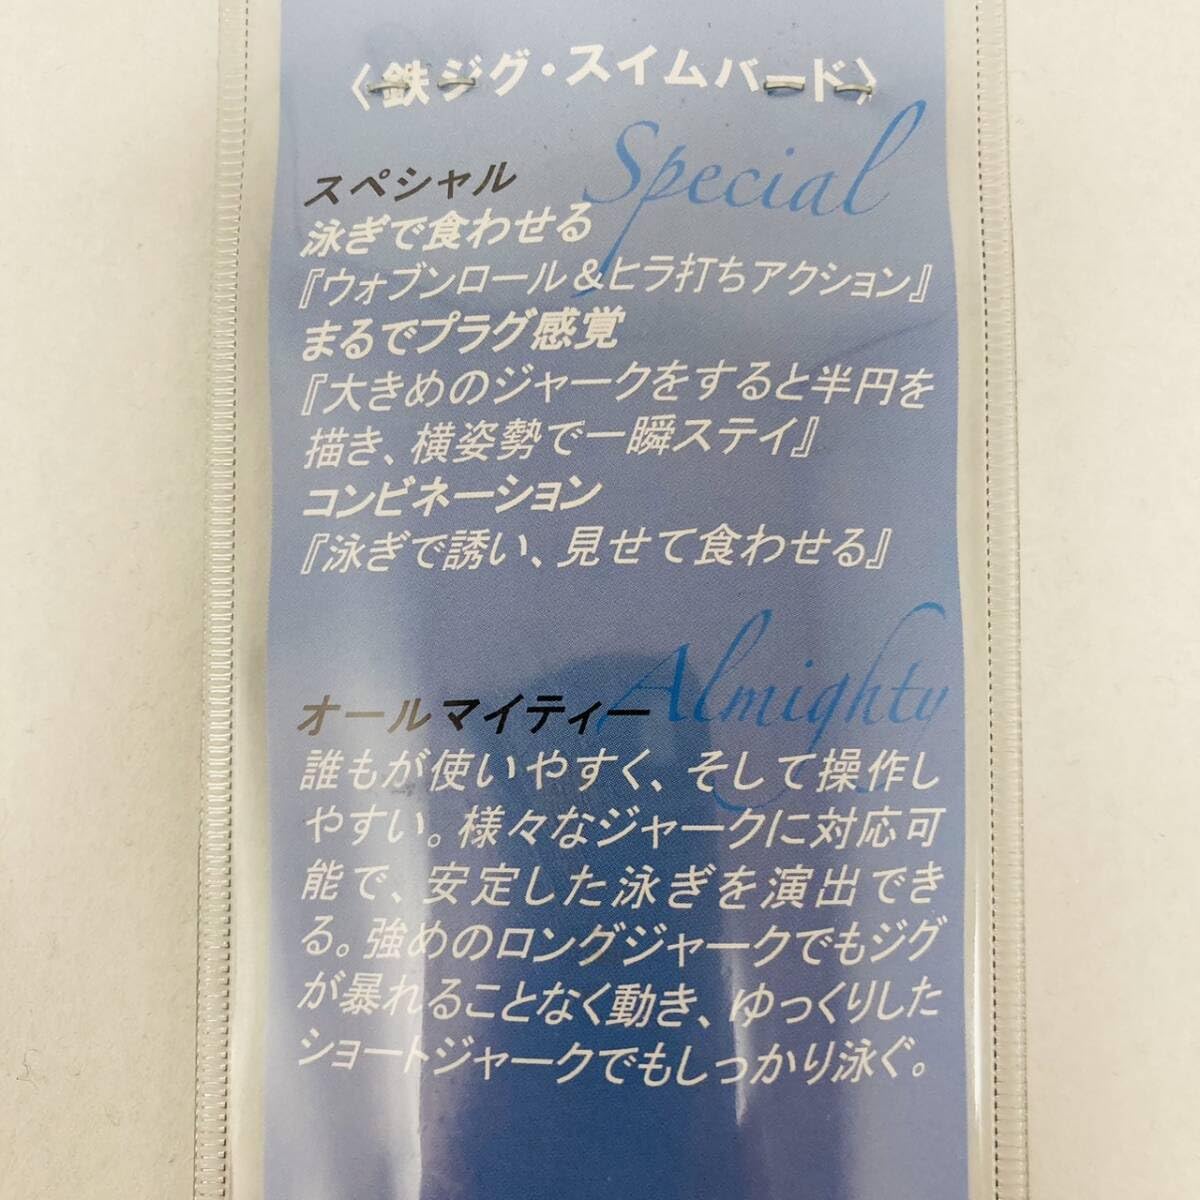 〈鉄ジグ・スイムバード〉
Special
スペシャル
泳ぎで食わせる
『ウォブンロール＆ヒラ打ちアクション』
まるでプラグ感覚
『大きめのジャークをすると半円を
描き、横姿勢で一瞬ステイ』
コンビネーション
『泳ぎで誘い、見せて食わせる』
Almighty
オールマイティー
誰もが使いやすく、そして操作し
やすい。様々なジャークに対応可
能で、安定した泳ぎを演出でき
る。強めのロングジャークでもジグ
が暴れることなく動き、ゆっくりした
ショートジャークでもしっかり泳ぐ。